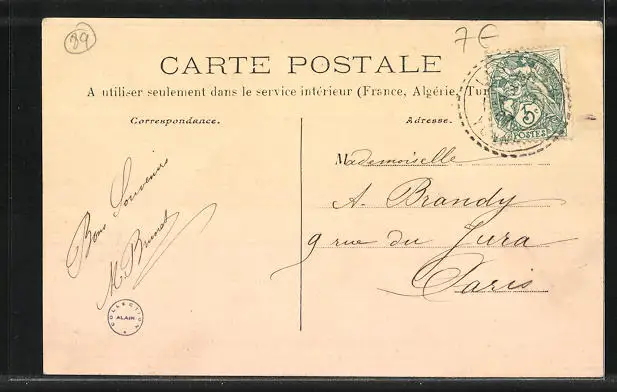 89
7€
CARTE POSTALE
A utiliser seulement dans le service intérieur (France, Algérie, Tun
Correspondance.
Adresse.
5c
POSTES
Mademoiselle
A. Brandy
9 rue du Jura
Paris
Bons Souvenirs
M.
COLLECTION
ALAIN